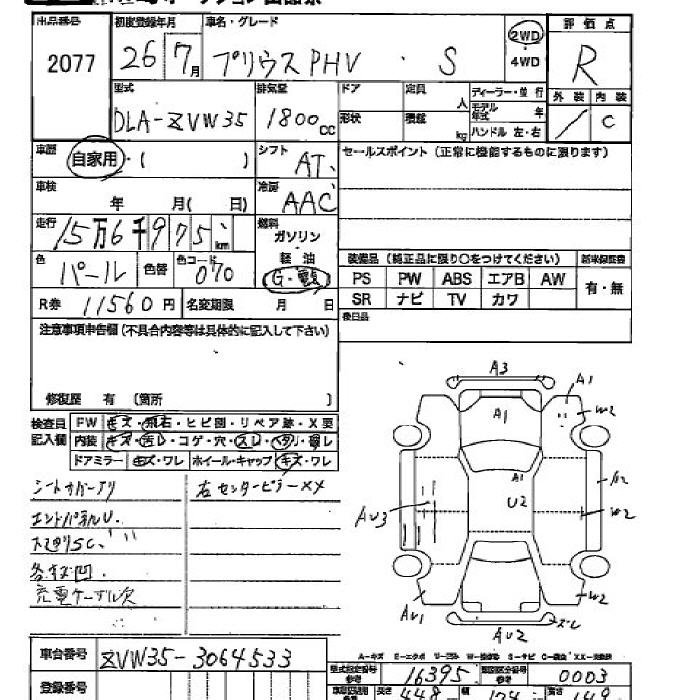 出品番号 初度登録年月 車名・グレード 評価点
2077 26 7月 プリウスPHV・S 2WD・4WD R
型式 排気量 ドア 定員 人 ディーラー・並行 外装 内装
DLA-ZVW35 1800cc 形状 積載 kg モデル年式 年 / C
ハンドル 左・右
車歴 自家用・( ) シフト AT セールスポイント (正常に機能するものに限ります)
車検 年 月( 日) 冷房 AAC
走行 15万6千975 km 燃料 ガソリン・軽油
色 パール 色替 色コード 070 G・電気
装備品 (純正品に限り〇をつけてください) 新車保証書
PS PW ABS エアB AW 有・無
SR ナビ TV カワ
R券 11560円 名変期限 月 日 後日品
注意事項申告欄 (不具合内容等は具体的に記入して下さい)
修復歴 有 (箇所 )
検査員記入欄 FW キズ・飛石・ヒビ割・リペア跡・X要
内装 キズ・汚レ・コゲ・穴・スレ・ヘタリ・破レ
ドアミラー キズ・ワレ ホイール・キャップ キズ・ワレ
右センターピラーXX
エンドパネルU.
各キズ凹
充電ケーブル欠
A3
A1
A1
W2
A1
U2
AU3
W2
W2
AU1
AU2
スレ
A-キズ E-エクボ U-ヘコミ W-補修跡 S-サビ C-腐食 XX-交換済
車台番号 ZVW35-3064533
型式指定番号 参考 16395 類別区分番号 参考 0003
登録番号
長さ 448 幅 174 高さ 149